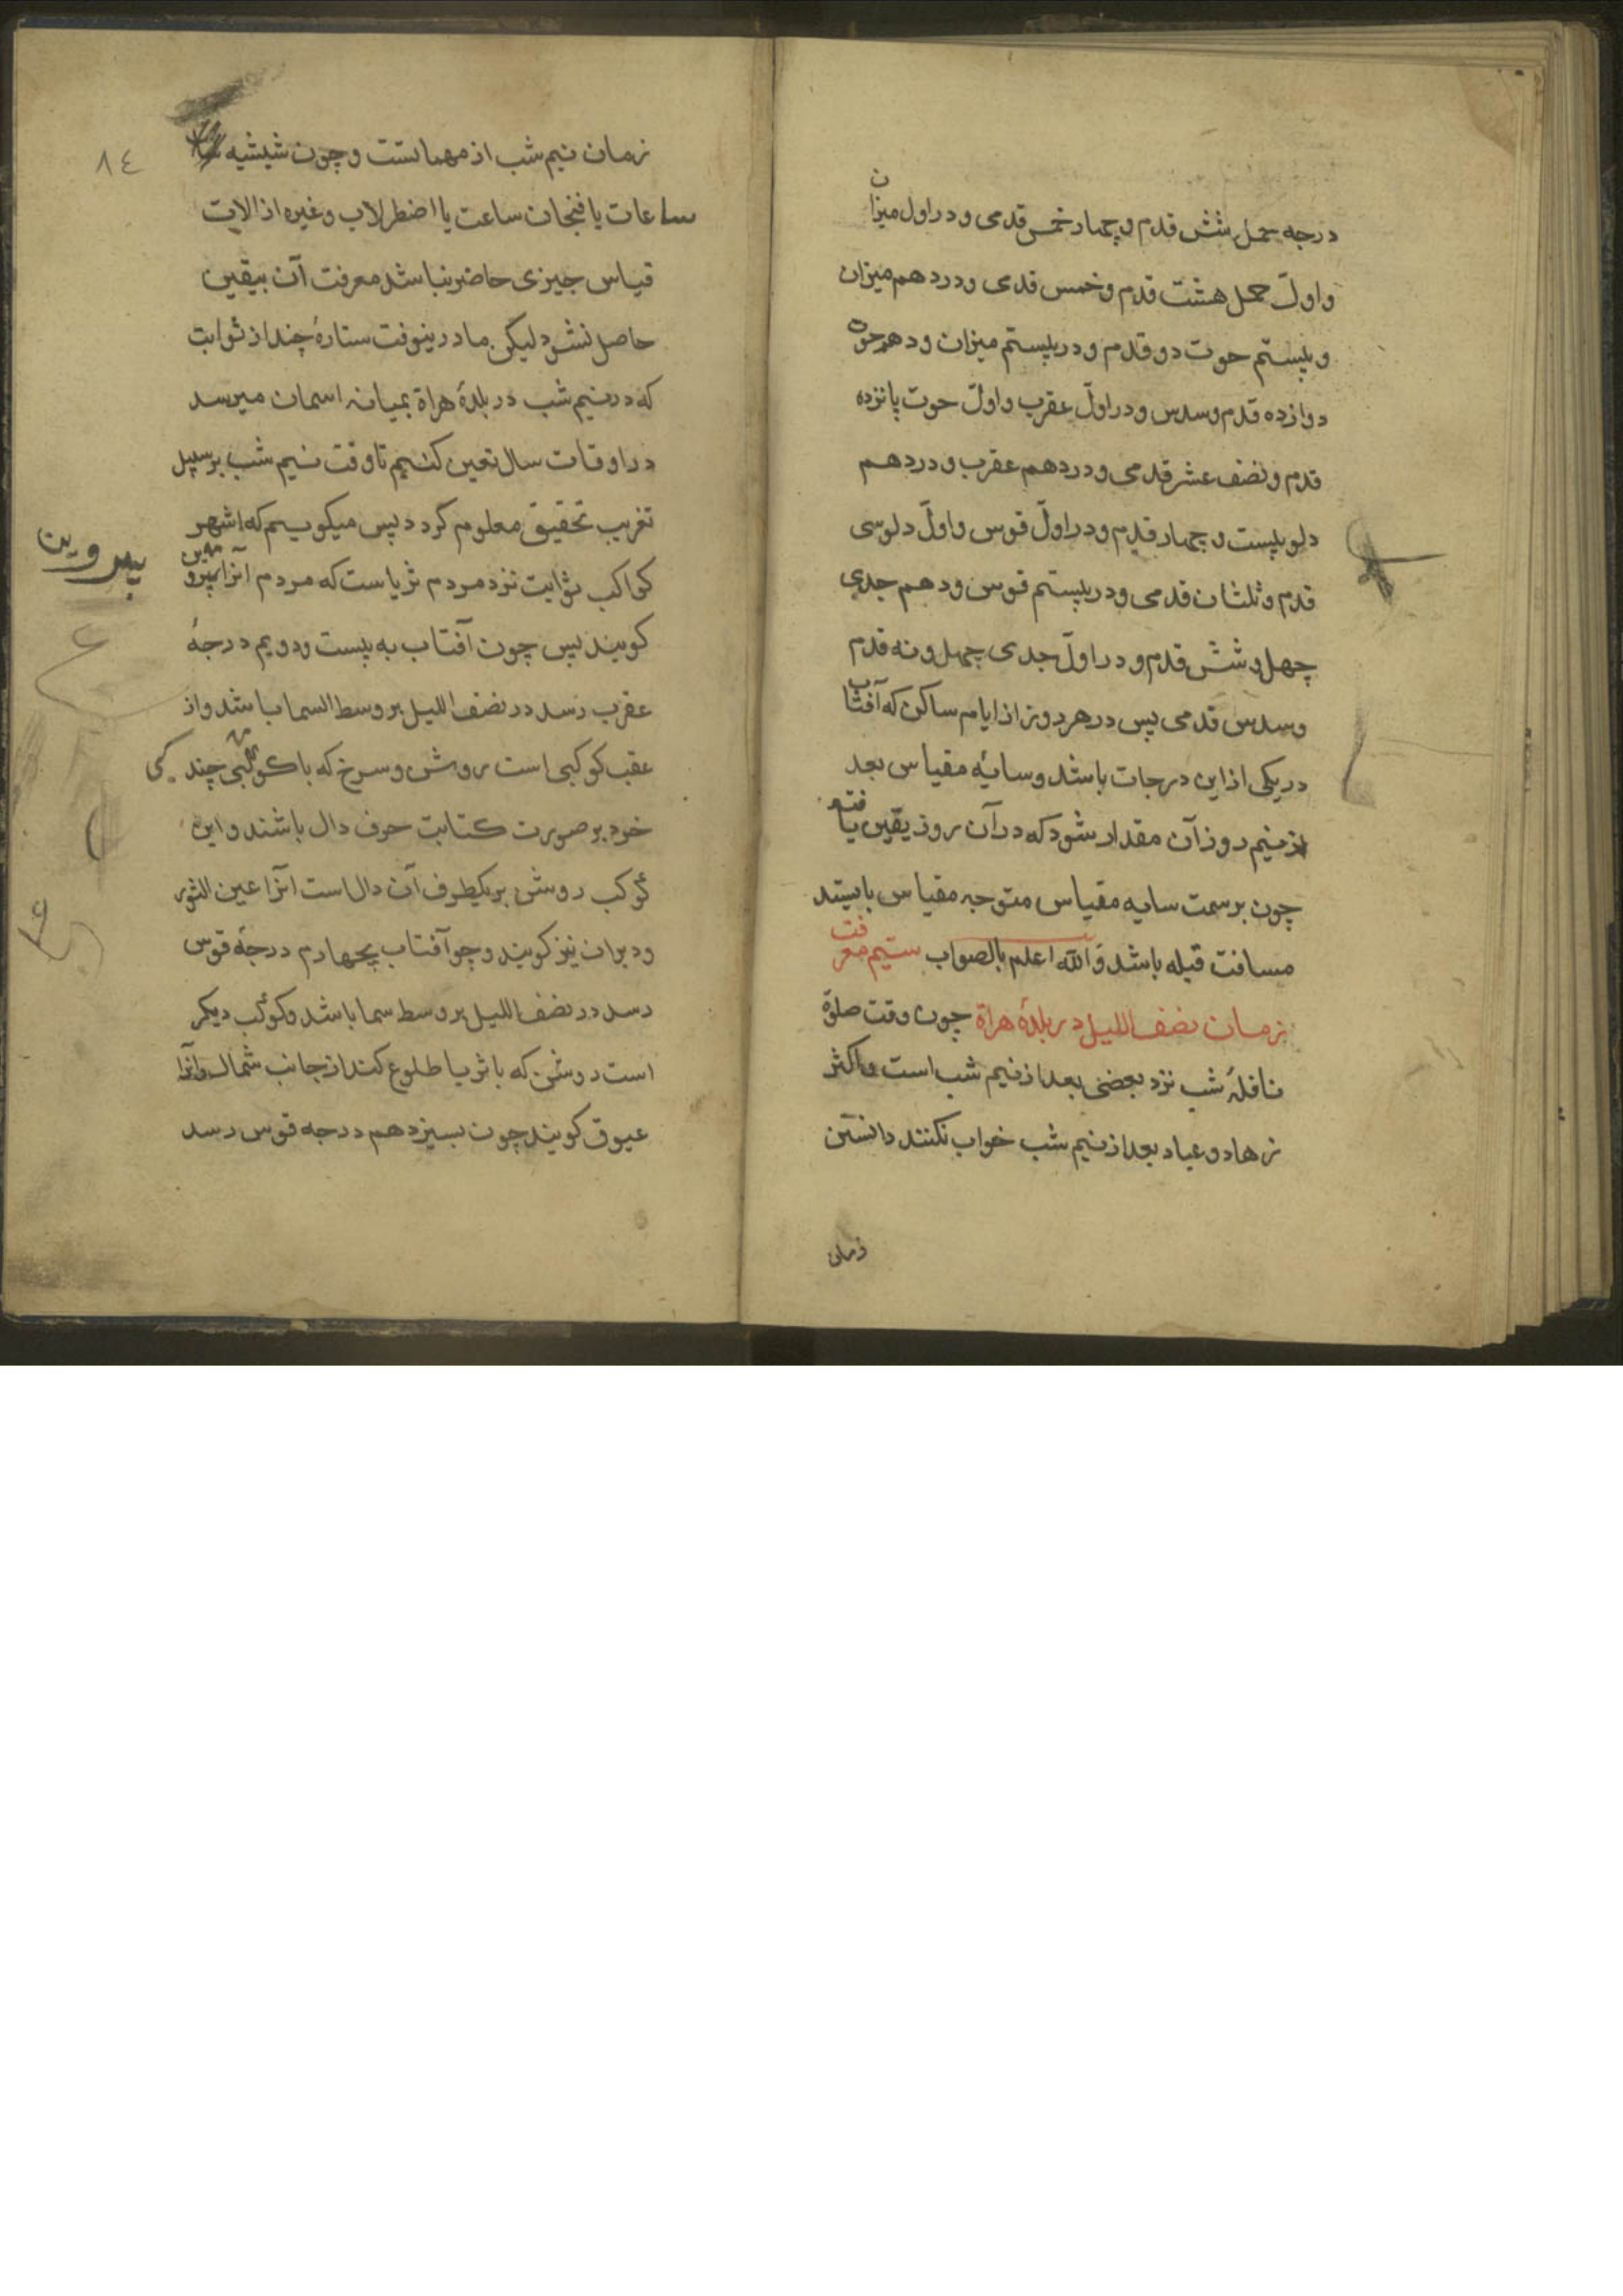 درجه حمل شش قدم و چهار خمس قدمی و در اول میزان
و اول حمل هشت قدم و خمس قدمی و در دهم میزان
و بیستم حوت دو قدم و در بیستم میزان و دهم حوت
دوازده قدم و سدس و در اول عقرب و اول حوت پانزده
قدم و نصف عشر قدمی و در دهم عقرب و در دهم
دلو بیست و چهار قدم و در اول قوس و اول دلو سی
قدم و ثلثان قدمی و در بیستم قوس و دهم جدی
چهل و شش قدم و در اول جدی چهل و نه قدم
و سدس قدمی پس در هر روز از ایام ساکن که آفتاب
در یکی از این درجات باشد و سایهٔ مقیاس بعد
از نیم روز آن مقدار شود که در آن روز یقین یافته
چون بر سمت سایه مقیاس متوجه مقیاس بایستد
مسافت قبله باشد والله اعلم بالصواب سیم معرفت
زمان نصف اللیل در بلدهٔ هراة چون وقت صلوة
نافلهٔ شب نزد بعضی بعد از نیم شب است و اکثر
زهاد و عباد بعد از نیم شب خواب نکنند دانستن
زمان
٨٤
زمان نیم شب از مهماتست و چون شیشیه
ساعات یا فنجان ساعت یا اضطرلاب و غیره از الات
قیاس جیزی حاضر نباشد معرفت آن بیقین
حاصل نشود لیکن ما درینوقت ستارهٔ چند از ثوابت
که در نیم شب در بلدهٔ هراة بمیانه اسمان میرسد
در اوقات سال تعین کنیم تا وقت نیم شب بر سبیل
تقریب تحقیق معلوم کردد پس میکوییم که اشهر
کواکب ثوابت نزد مردم ثریاست که مردم انرا پروین
پیروین
کویند پس چون آفتاب به بیست و دویم درجهٔ
عقرب رسد در نصف اللیل بر وسط السما باشد و از
عقب کوکبی است روشن و سرخ که با کوکبی چند کی
خود بر صورت کتابت حرف دال باشند و این
کوکب روشن بر یکطرف آن دال است انرا عین الثور
و دبران نیز کویند و چو آفتاب بچهارم درجهٔ قوس
رسد در نصف اللیل بر وسط سما باشد و کوکب دیکر
است روشن که با ثریا طلوع کند از جانب شمال و انرا
عیوق کویند چون بسیزدهم درجه قوس رسد